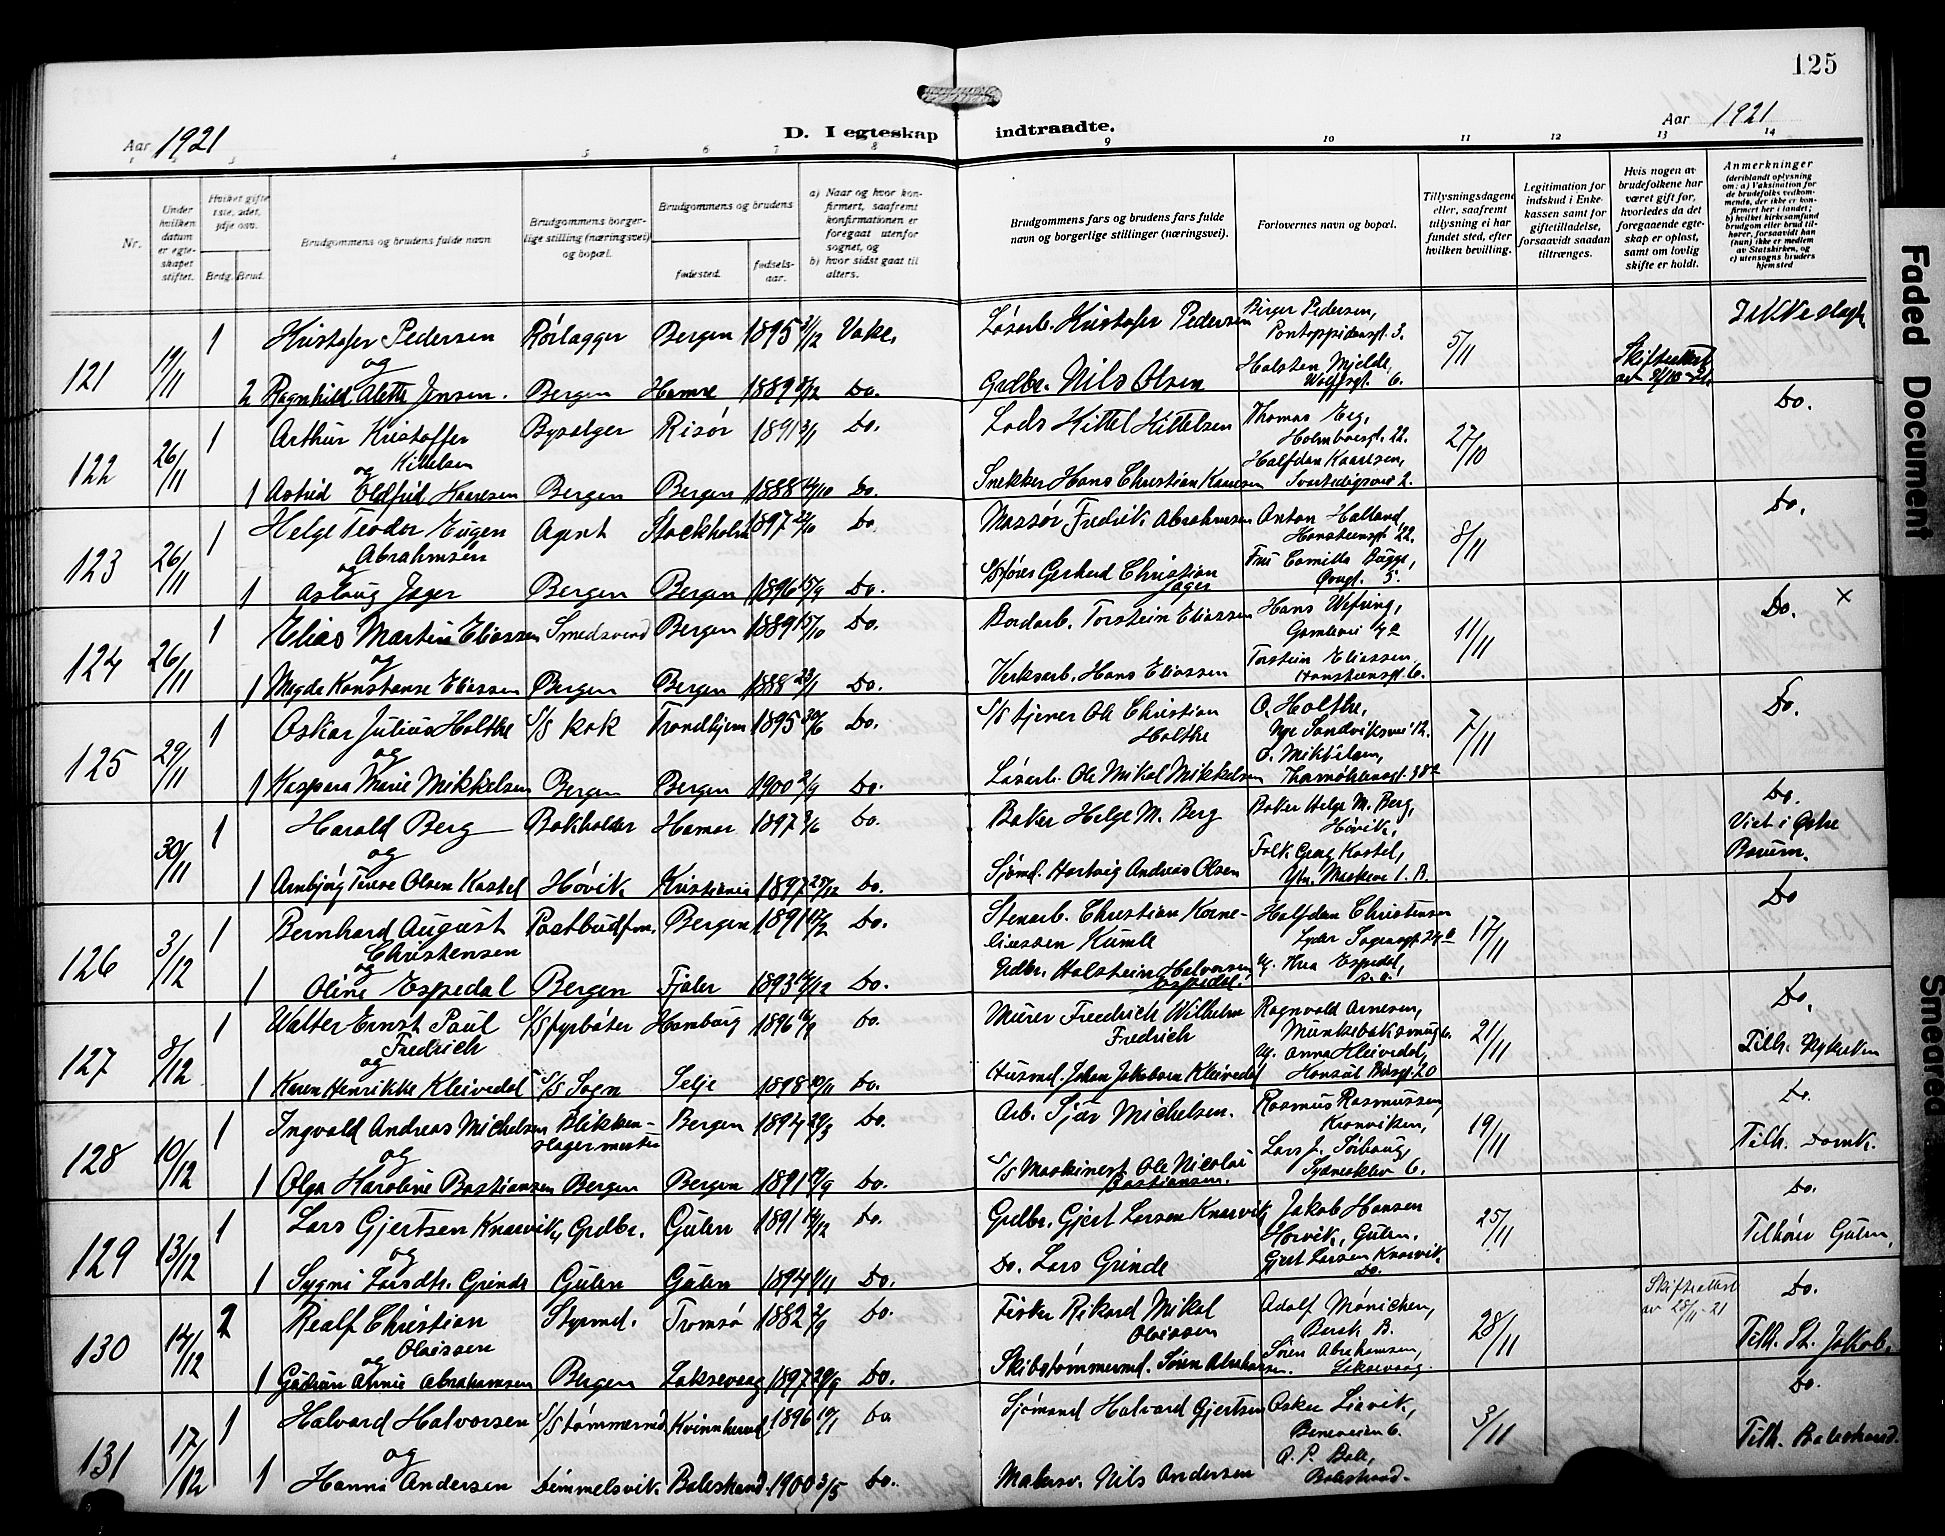 125
Aar 1921
D. I egteskap indtraadte.
Aar 1921
1 2 3 4 5 6 7 8 9 10 11 12 13 14
Nr.
Under hvilken datum er egteskapet stiftet.
Hvilket gifte 1ste, 2det, 3dje osv.
Brdg. Brud.
Brudgommens og brudens fulde navn
Brudgommens borgerlige stilling (næringsvei) og bopæl.
Brudgommens og brudens
fødested.
fødselsaar.
a) Naar og hvor konfirmert, saafremt konfirmationen er foregaat utenfor sognet, og
b) hvor sidst gaat til alters.
Brudgommens fars og brudens fars fulde navn og borgerlige stillinger (næringsvei).
Forlovernes navn og bopæl.
Tillysningsdagene eller, saafremt tillysning ei har fundet sted, efter hvilken bevilling.
Legitimation for indskud i Enkekassen samt for giftetilladelse, forsaavidt saadan tiltrænges.
Hvis nogen av brudefolkene har været gift før, hvorledes da det foregaaende egteskap er opløst, samt om lovlig skifte er holdt.
Anmerkninger
(deriblandt oplysning om: a) Vaksination for de brudefolks vedkommende, der ikke er konfirmert her i landet;
b) hvilket kirkesamfund brudgom eller brud tilhører, forsaavidt han (hun) ikke er medlem av Statskirken, og
c) utensogns bruders hjemsted
121 19/11 1 Kristofer Pedersen Rørlægger Bergen 1895 Vake. Løsarb. Kristofer Pedersen Birger Pedersen, Pontoppidansgt. 3. 5/11
og
2 Ragnhild Alette Jensen. Bergen Hamre 1889 Do. Grdbr. Nils Olsen Holsten Mjelde, Wolffsgt. 6. Skifteattest
122 26/11 1 Arthur Kristoffer Kittelsen Bysælger Risør 1891 3/1 Do. Lods Kittel Kittelsen Thomas Erg, Holmboesgt. 22. 27/10 Do.
og
1 Astrid Oldfrid Kaarsen Bergen Bergen 1888 Do. Snekker Hans Christian Kaarsen Halfdan Kaarsen,
123 26/11 1 Helge Teodor Eugen Abrahmsen Agent Stockholm 1897 22/10 Do. Massør Fredrik Abrahmsen Anton Halland, Hansteensgt. 22. 8/11 Do.
og
1 Aslaug Jager Bergen Bergen 1896 15/9 Do. Gerhard Christian Jager Fru Camilla Bugge, 5.
124 26/11 1 Elias Martin Eliassen Smedsvend Bergen 1889 15/10 Do. Bordarb. Torstein Eliassen Hans Wefring, 11/11 Do. ×
og
1 Magda Konstanse Eliassen Bergen Bergen 1888 23/1 Do. Verksarb. Hans Eliassen Torstein Eliassen, Hansteensgt. 6.
125 29/11 1 Oskar Julius Holthe S/S kok Trondhjem 1895 Do. S/S tjener Ole Christian Holthe O. Holthe, Nye Sandviksvei 12. 7/11 Do.
og
1 Kaspara Marie Mikkelsen Bergen Bergen 1900 2/9 Do. Løsarb. Ole Mikal Mikkelsen O. Mikkelsen,
30/11 1 Harald Berg Bokholder Hamar 1897 Do. Baker Helge M. Berg Baker Helge M. Berg, Høvik, Do. Viet i Østre Bærum.
og
1 Arnbjørg Olsen Kastel Høvik Kristiania 1897 25/12 Do. Sjømd. Hartvig Andreas Olsen
126 3/12 1 Bernhard August Christensen Postbudfm. Bergen 1891 Do. Stenarb. Christian Korneliussen Kumle Halfdan Christensen Lyder Sagensgt. 17/11 Do
og
1 Oline Espedal Bergen Fjaler 1893 Do. Grdbr. Holstein Halvorsen Espedal. Espedal,
127 8/12 1 Walter Ernst Paul Fredrich S/S fyrbøter Hamburg 1896 Do. Murer Fredrich Wilhelm Fredrich Ragnvald Arnesen, 21/11 Do.
og
1 Karen Henrikke Kleivedal S/S Sogn Selje 1898 10/11 Do. Husmd. Johan Jakobsen Kleivedal Anna Kleivedal, 20 Tilh.
128 10/12 1 Ingvald Andreas Michelsen Blikkenslagermester Bergen 1894 Do. Arb. Sjur Michelsen. Rasmus Rasmussen, Kronviken, 19/11 Do.
og
1 Olga Karoline Bastiansen Bergen Bergen 1891 Do. S/S Maskinest Ole Nicolai Bastiansen. Lars J. Sørhaug, Sydnesklev 6. Tilh. Domk.
129 13/12 1 Lars Gjertsen Knarvik, Grdbr. Gulen 1891 14/12 Do. Grdbr. Gjert Larsen Knarvik Jakob Hansen Gulen. 25/11 Do.
og
1 Sygni Larsdtr. Grinde Gulen Gulen 1894 Do. Do. Lars Grinde Gjert Larsen Knarvik. Do. Tilhører Gulen,
130 14/12 2 Realf Christian Olaissen Styrmd. Tromsø 1882 2/9 Do. Fisker Rikard Mikal Olaissen Adolf Mønichen, 28/11 Skifteattest av 28/11-21 Do.
og
1 Gudrun Annie Abrahamsen Bergen Laksevaag 1897 29/9 Do. Skibstømmermd. Søren Abrahamsen. Søren Abrahamsen, Laksevaag. Tilh. St. Jakob.
131 17/12 1 Halvard Halvorsen S/S tømmermd. Kvinnherad 1896 19/1 Do Sjømand Halvard Gjertsen 6. 3/11 Do.
og
1 Hanna Andersen Balestrand. 1900 3/5 Do. Malersv. Nils Andersen A. P. Balestrand. Tilh. Balestrand.
Faded Document
Smeared